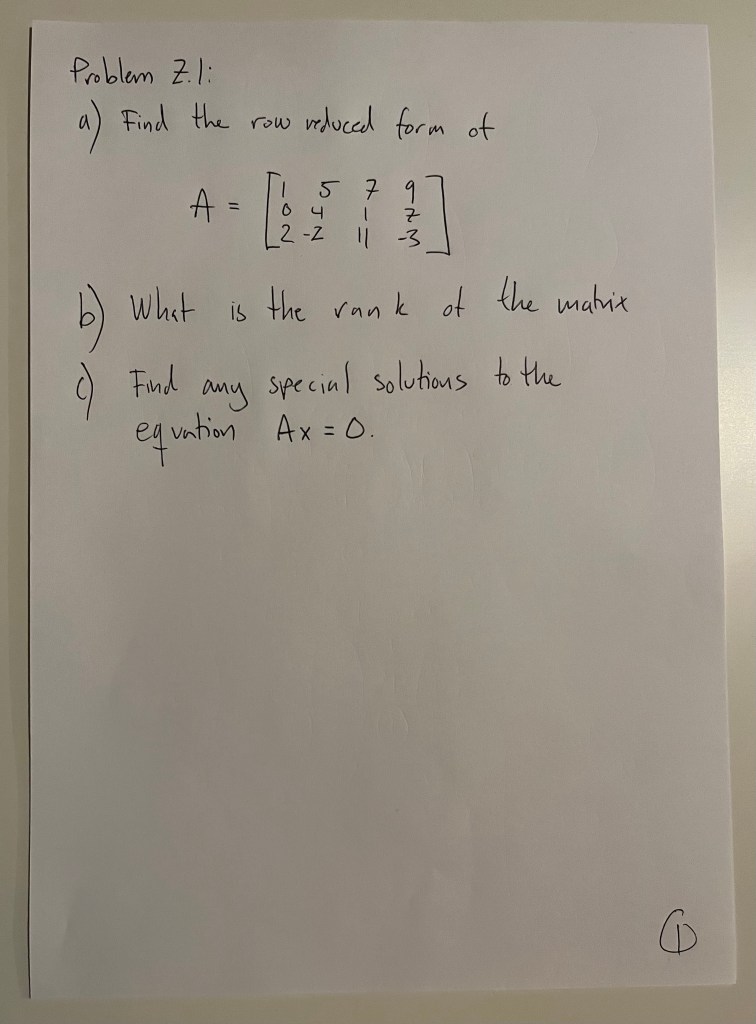 Problem 7.1:
a) Find the row reduced form of
A = [1 5 7 9
0 4 1 7
2 -2 11 -3]
b) What is the rank of the matrix
c) Find any special solutions to the
equation Ax = 0.
1